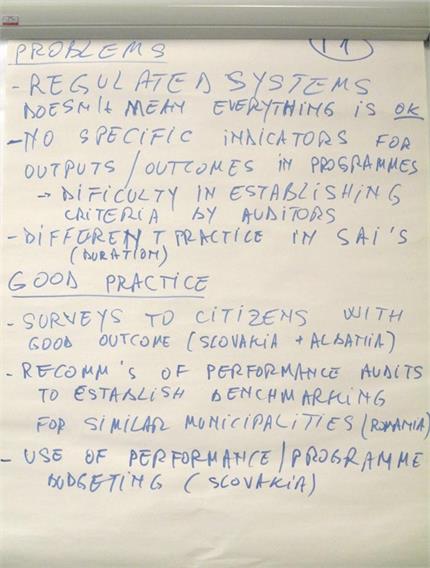 PROBLEMS
- REGULATED SYSTEMS
DOESN'T MEAN EVERYTHING IS OK
- NO SPECIFIC INDICATORS FOR
OUTPUTS / OUTCOMES IN PROGRAMMES
→ DIFICULTY IN ESTABLISHING
CRITERIA BY AUDITORS
- DIFFERENT PRACTICE IN SAI'S
(DURATION)
GOOD PRACTICE
- SURVEYS TO CITIZENS WITH
GOOD OUTCOME (SLOVAKIA + ALBANIA)
- RECOMM'S OF PERFORMANCE AUDITS
TO ESTABLISH BENCHMARKING
FOR SIMILAR MUNICIPALITIES (ROMANIA)
- USE OF PERFORMANCE / PROGRAMME
BUDGETING (SLOVAKIA)